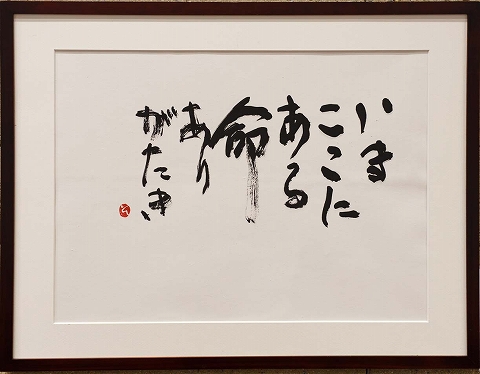 いま
ここに
ある
命
あり
がたき